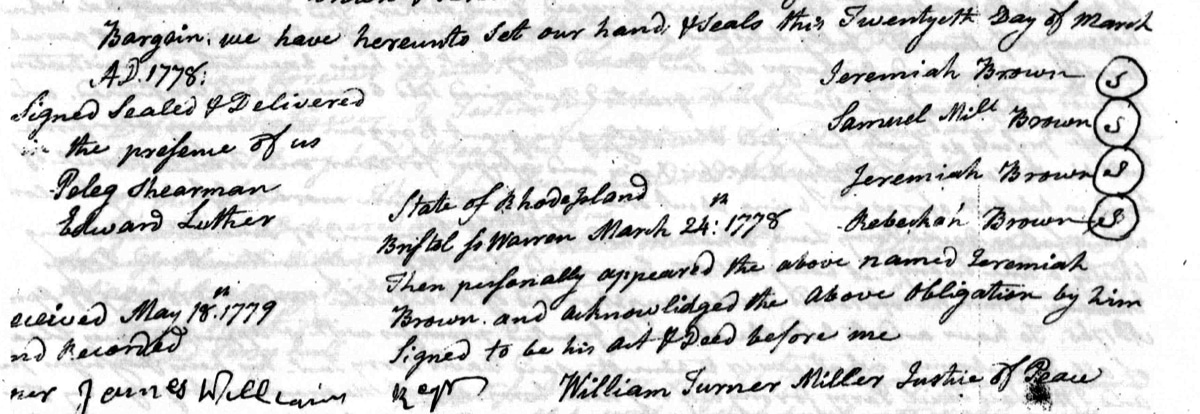 Bargain: we have hereunto set our hand, & seals this Twentyeth Day of March
A.D. 1778:
Jeremiah Brown S
Signed Sealed & Delivered
Samuel Mill Brown S
in the presence of us
Jeremiah Brown S
Peleg Shearman
Rebeckah Brown S
Edward Luther
State of Rhode Island
Bristol ss Warren March 24th: 1778
Then personally appeared the above named Jeremiah
Brown. and acknowlidged the above obligation by him
Signed to be his act & Deed before me
William Turner Miller Justice of Peace
eceived May 18th. 1779
nd Recorded
James Williams